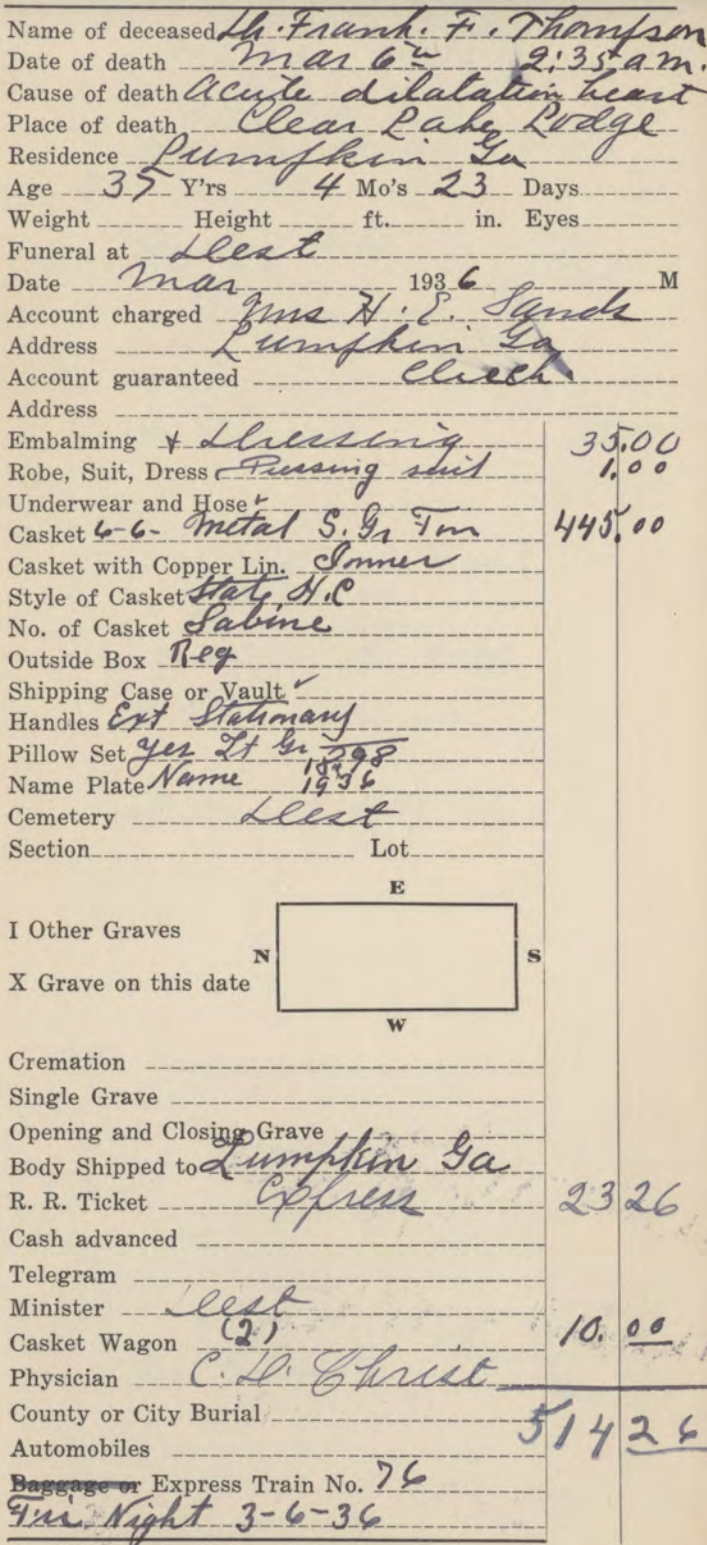 Name of deceased Dr. Frank. F. Thompson
Date of death Mar 6th 2:35 a.m.
Cause of death Acute dilatation heart
Place of death Clear Lake Lodge
Residence Lumpkin Ga
Age 35 Y'rs 4 Mo's 23 Days
Weight Height ft. in. Eyes
Funeral at Dest
Date Mar 1936 M
Account charged Mrs H. E. Sands
Address Lumpkin Ga
Account guaranteed Check
Address
Embalming & Dressing 35.00
Robe, Suit, Dress Pressing suit 1.00
Underwear and Hose ✓
Casket 6-6- Metal S. Gr Tm 445.00
Casket with Copper Lin. Inner
Style of Casket State H.C
No. of Casket Sabine
Outside Box Reg
Shipping Case or Vault ✓
Handles Ext Stationary
Pillow Set yes Lt Gr
Name Plate Name 1936
Cemetery Dest
Section Lot
E
I Other Graves
N S
X Grave on this date
W
Cremation
Single Grave
Opening and Closing Grave
Body Shipped to Lumpkin Ga
R. R. Ticket Express 23 26
Cash advanced
Telegram
Minister Dest
Casket Wagon (2) 10.00
Physician C. D. Christ
County or City Burial 514 26
Automobiles
Baggage or Express Train No. 76
Fri. Night 3-6-36